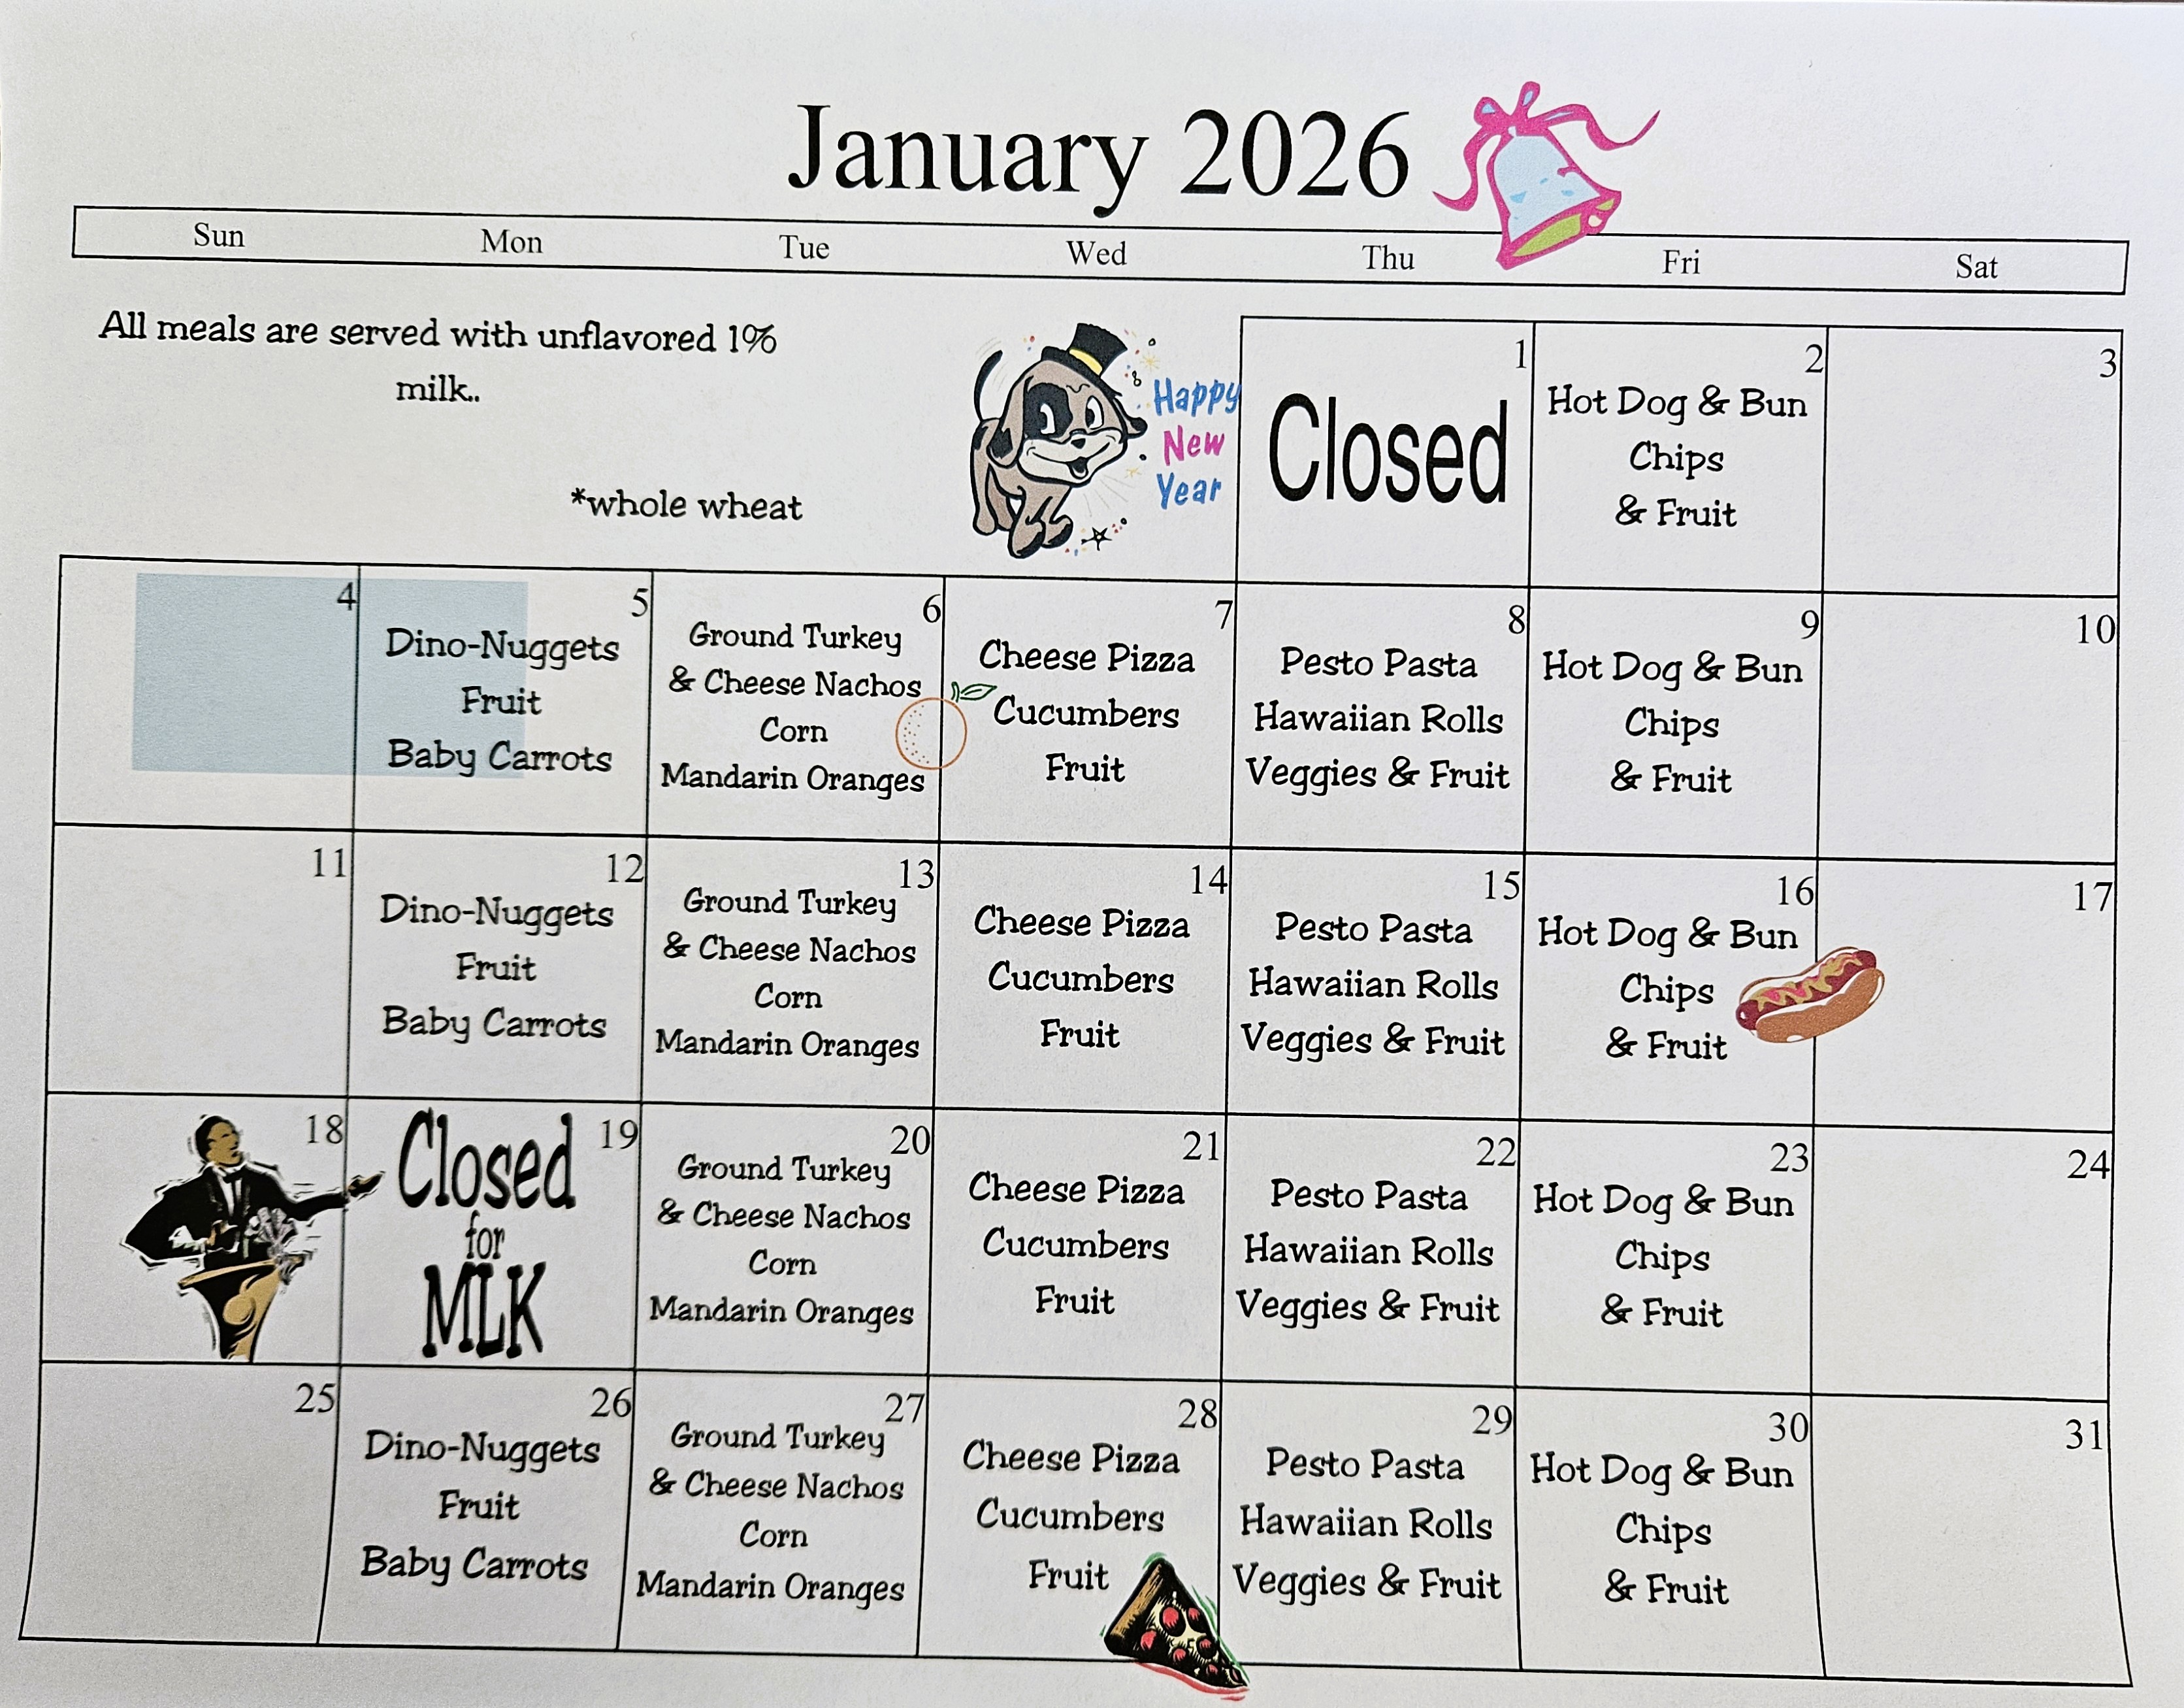 January 2026
Sun Mon Tue Wed Thu Fri Sat
All meals are served with unflavored 1%
milk..
*whole wheat
Happy
New
Year
1
Closed
2
Hot Dog & Bun
Chips
& Fruit
3
4
5
Dino-Nuggets
Fruit
Baby Carrots
6
Ground Turkey
& Cheese Nachos
Corn
Mandarin Oranges
7
Cheese Pizza
Cucumbers
Fruit
8
Pesto Pasta
Hawaiian Rolls
Veggies & Fruit
9
Hot Dog & Bun
Chips
& Fruit
10
11
12
Dino-Nuggets
Fruit
Baby Carrots
13
Ground Turkey
& Cheese Nachos
Corn
Mandarin Oranges
14
Cheese Pizza
Cucumbers
Fruit
15
Pesto Pasta
Hawaiian Rolls
Veggies & Fruit
16
Hot Dog & Bun
Chips
& Fruit
17
18
19
Closed
for
MLK
20
Ground Turkey
& Cheese Nachos
Corn
Mandarin Oranges
21
Cheese Pizza
Cucumbers
Fruit
22
Pesto Pasta
Hawaiian Rolls
Veggies & Fruit
23
Hot Dog & Bun
Chips
& Fruit
24
25
26
Dino-Nuggets
Fruit
Baby Carrots
27
Ground Turkey
& Cheese Nachos
Corn
Mandarin Oranges
28
Cheese Pizza
Cucumbers
Fruit
29
Pesto Pasta
Hawaiian Rolls
Veggies & Fruit
30
Hot Dog & Bun
Chips
& Fruit
31